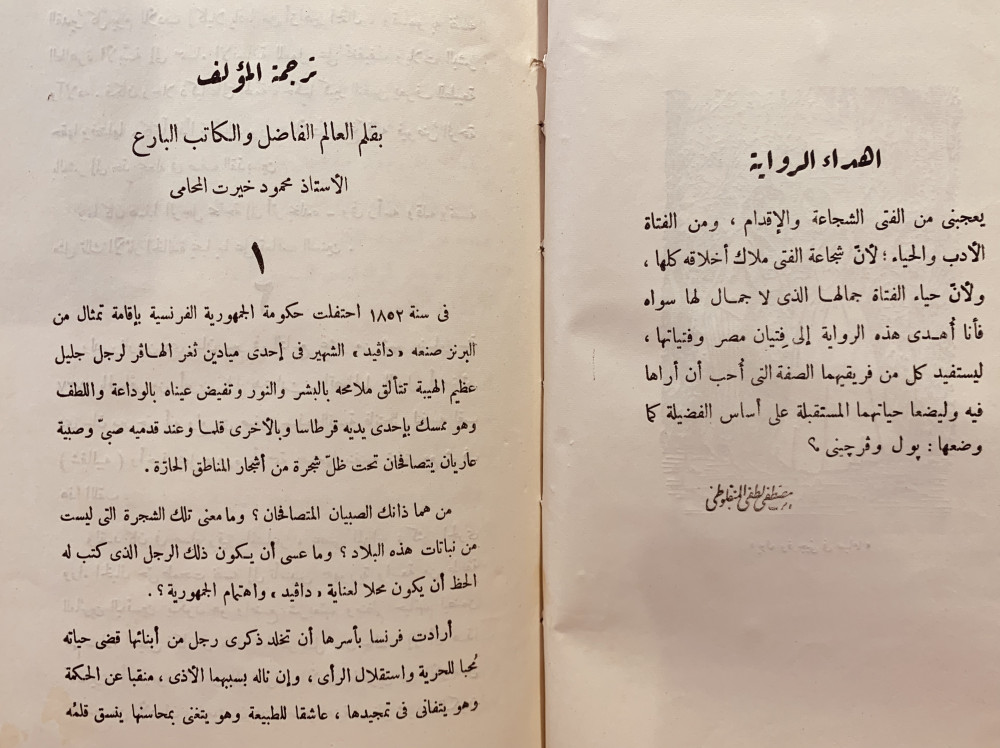 اهداء الرواية
يعجبنى من الفتى الشجاعة والإقدام ، ومن الفتاة
الأدب والحياء ؛ لأنّ شجاعة الفتى ملاك أخلاقه كلها ،
ولأنّ حياء الفتاة جمالهـا الذى لا جمـال لها سواه
فأنا أُهـدى هذه الرواية إلى فِتيان مصر وفتياتها ،
ليستفيد كل من فريقيهما الصفة التى أُحب أن أراها
فيه وليضعا حياتهما المستقبلة على أساس الفضيلة كما
وضعها : پول وڤرچينى ؟
مصطفى لطفى المنفلوطى
ترجمة المؤلف
بقلم العالم الفاضل والكاتب البارع
الأستاذ محمود خيرت المحامى
١
فى سنة ١٨٥٢ احتفلت حكومة الجمهورية الفرنسية بإقامة تمثال من
البرنز صنعه « داڤيد » الشهير فى إحدى ميادين ثغر الهـاڤر لرجل جليل
عظيم الهيبة تتألق ملامحه بالبشر والنور وتفيض عيناه بالوداعة واللطف
وهو ممسك بإحدى يديه قرطاسا وبالأخرى قلمـا وعند قدميه صبىّ وصبية
عاريان يتصافحان تحت ظلّ شجرة من أشجار المناطق الحارّة .
من هما ذانك الصبيان المتصافحان ؟ وما معنى تلك الشجرة التى ليست
من نباتات هذه البلاد ؟ وما عسى أن يـكون ذلك الرجل الذى كتب له
الحظ أن يكون محلا لعناية « داڤيد » واهتمام الجمهورية ؟ .
أرادت فرنسا بأسرها أن تخلد ذكرى رجل من أبنائها قضى حياته
مُحبا للحرية واستقلال الرأى ، وإن ناله بسببهما الأذى ، منقبا عن الحكمة
وهو يتفانى فى تمجيدها ، عاشقا للطبيعة وهو يتغنى بمحاسنها ينسق قلمُه